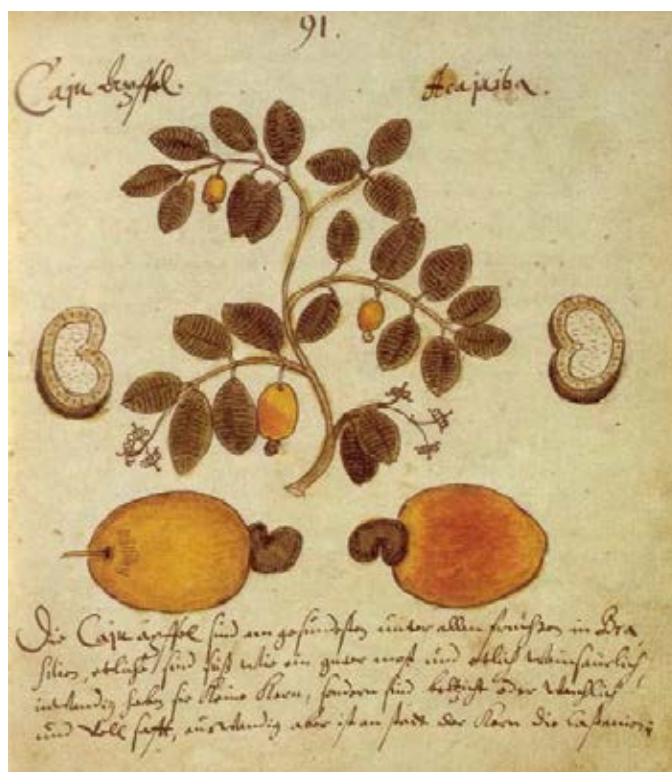 91.
Caju äpffel. Acajuiba.
Die Caju äpffel sind am gesündesten unter allen früchten in Bra
silien, etliche sind süß wie ein guter most und etlich weinsäurlich
inwendig haben sie keine Kern, sondern sind oder
und voll safft, auswendig aber ist an stadt der Kern die Castanien